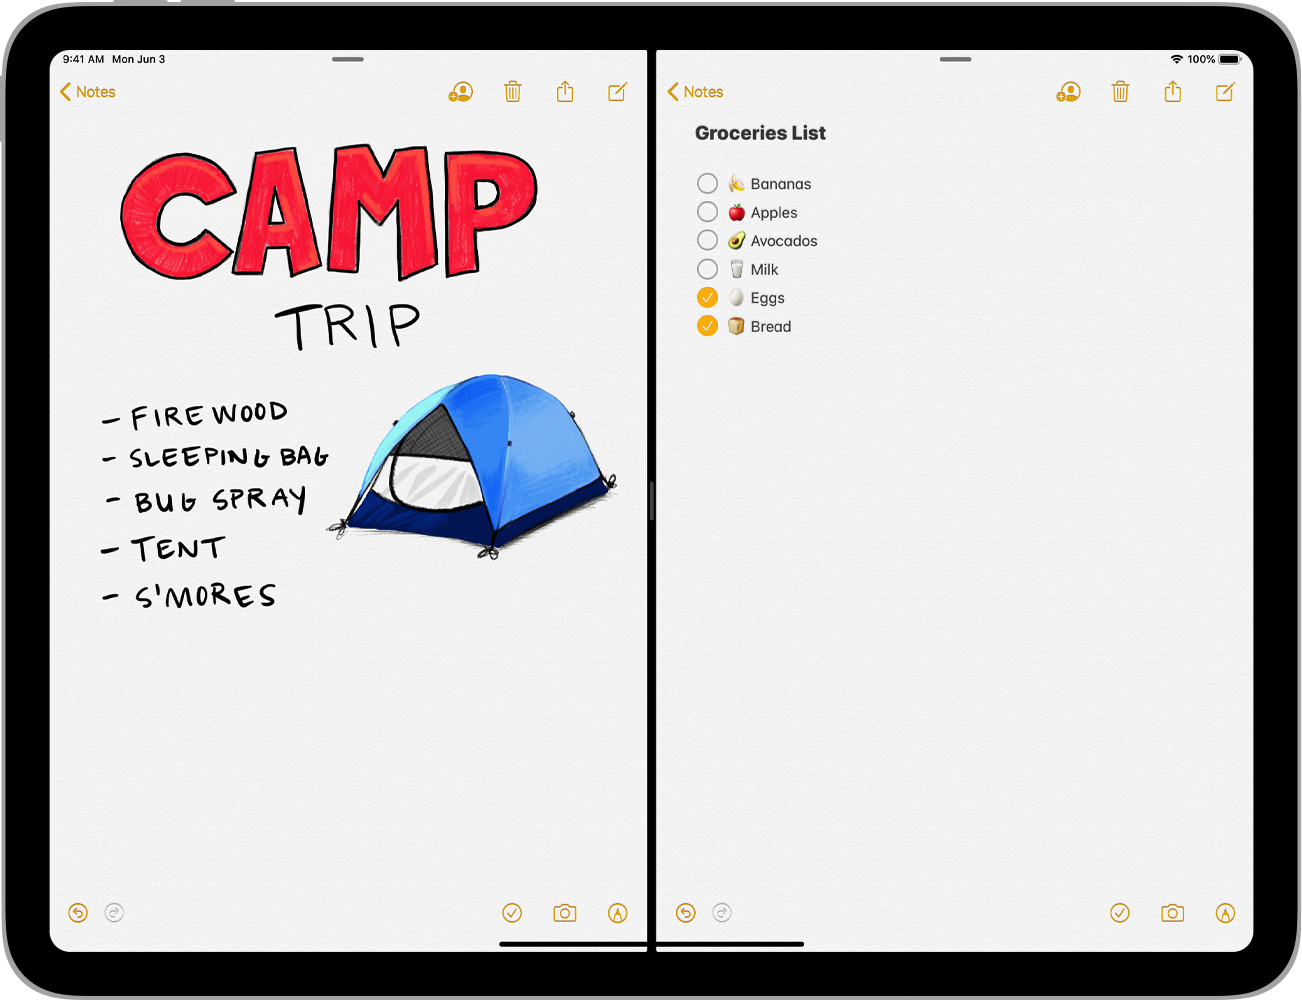 9:41 AM Mon Jun 3
Notes
CAMP
TRIP
- FIREWOOD
- SLEEPING BAG
- BUG SPRAY
- TENT
- S'MORES
100%
Notes
Groceries List
Bananas
Apples
Avocados
Milk
Eggs
Bread